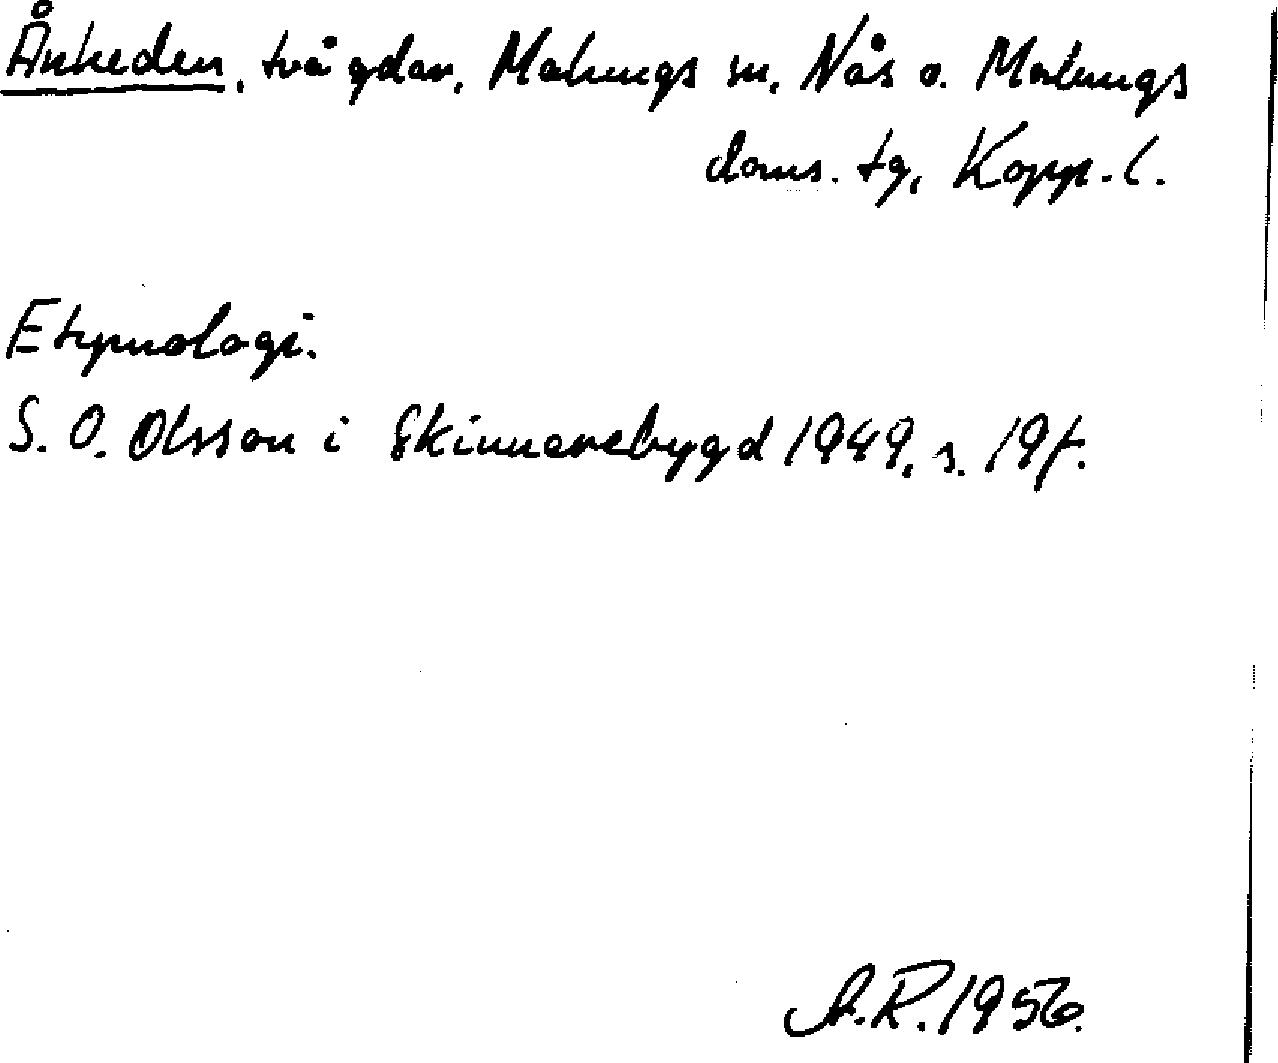 Årheden, två gdar, Malungs sn, Nås o. Malungs
doms. tg, Kopp. l.
Etymologi.
S. O. Olsson i Skinnarebygd 1949, s. 19f.
A.R. 1956.